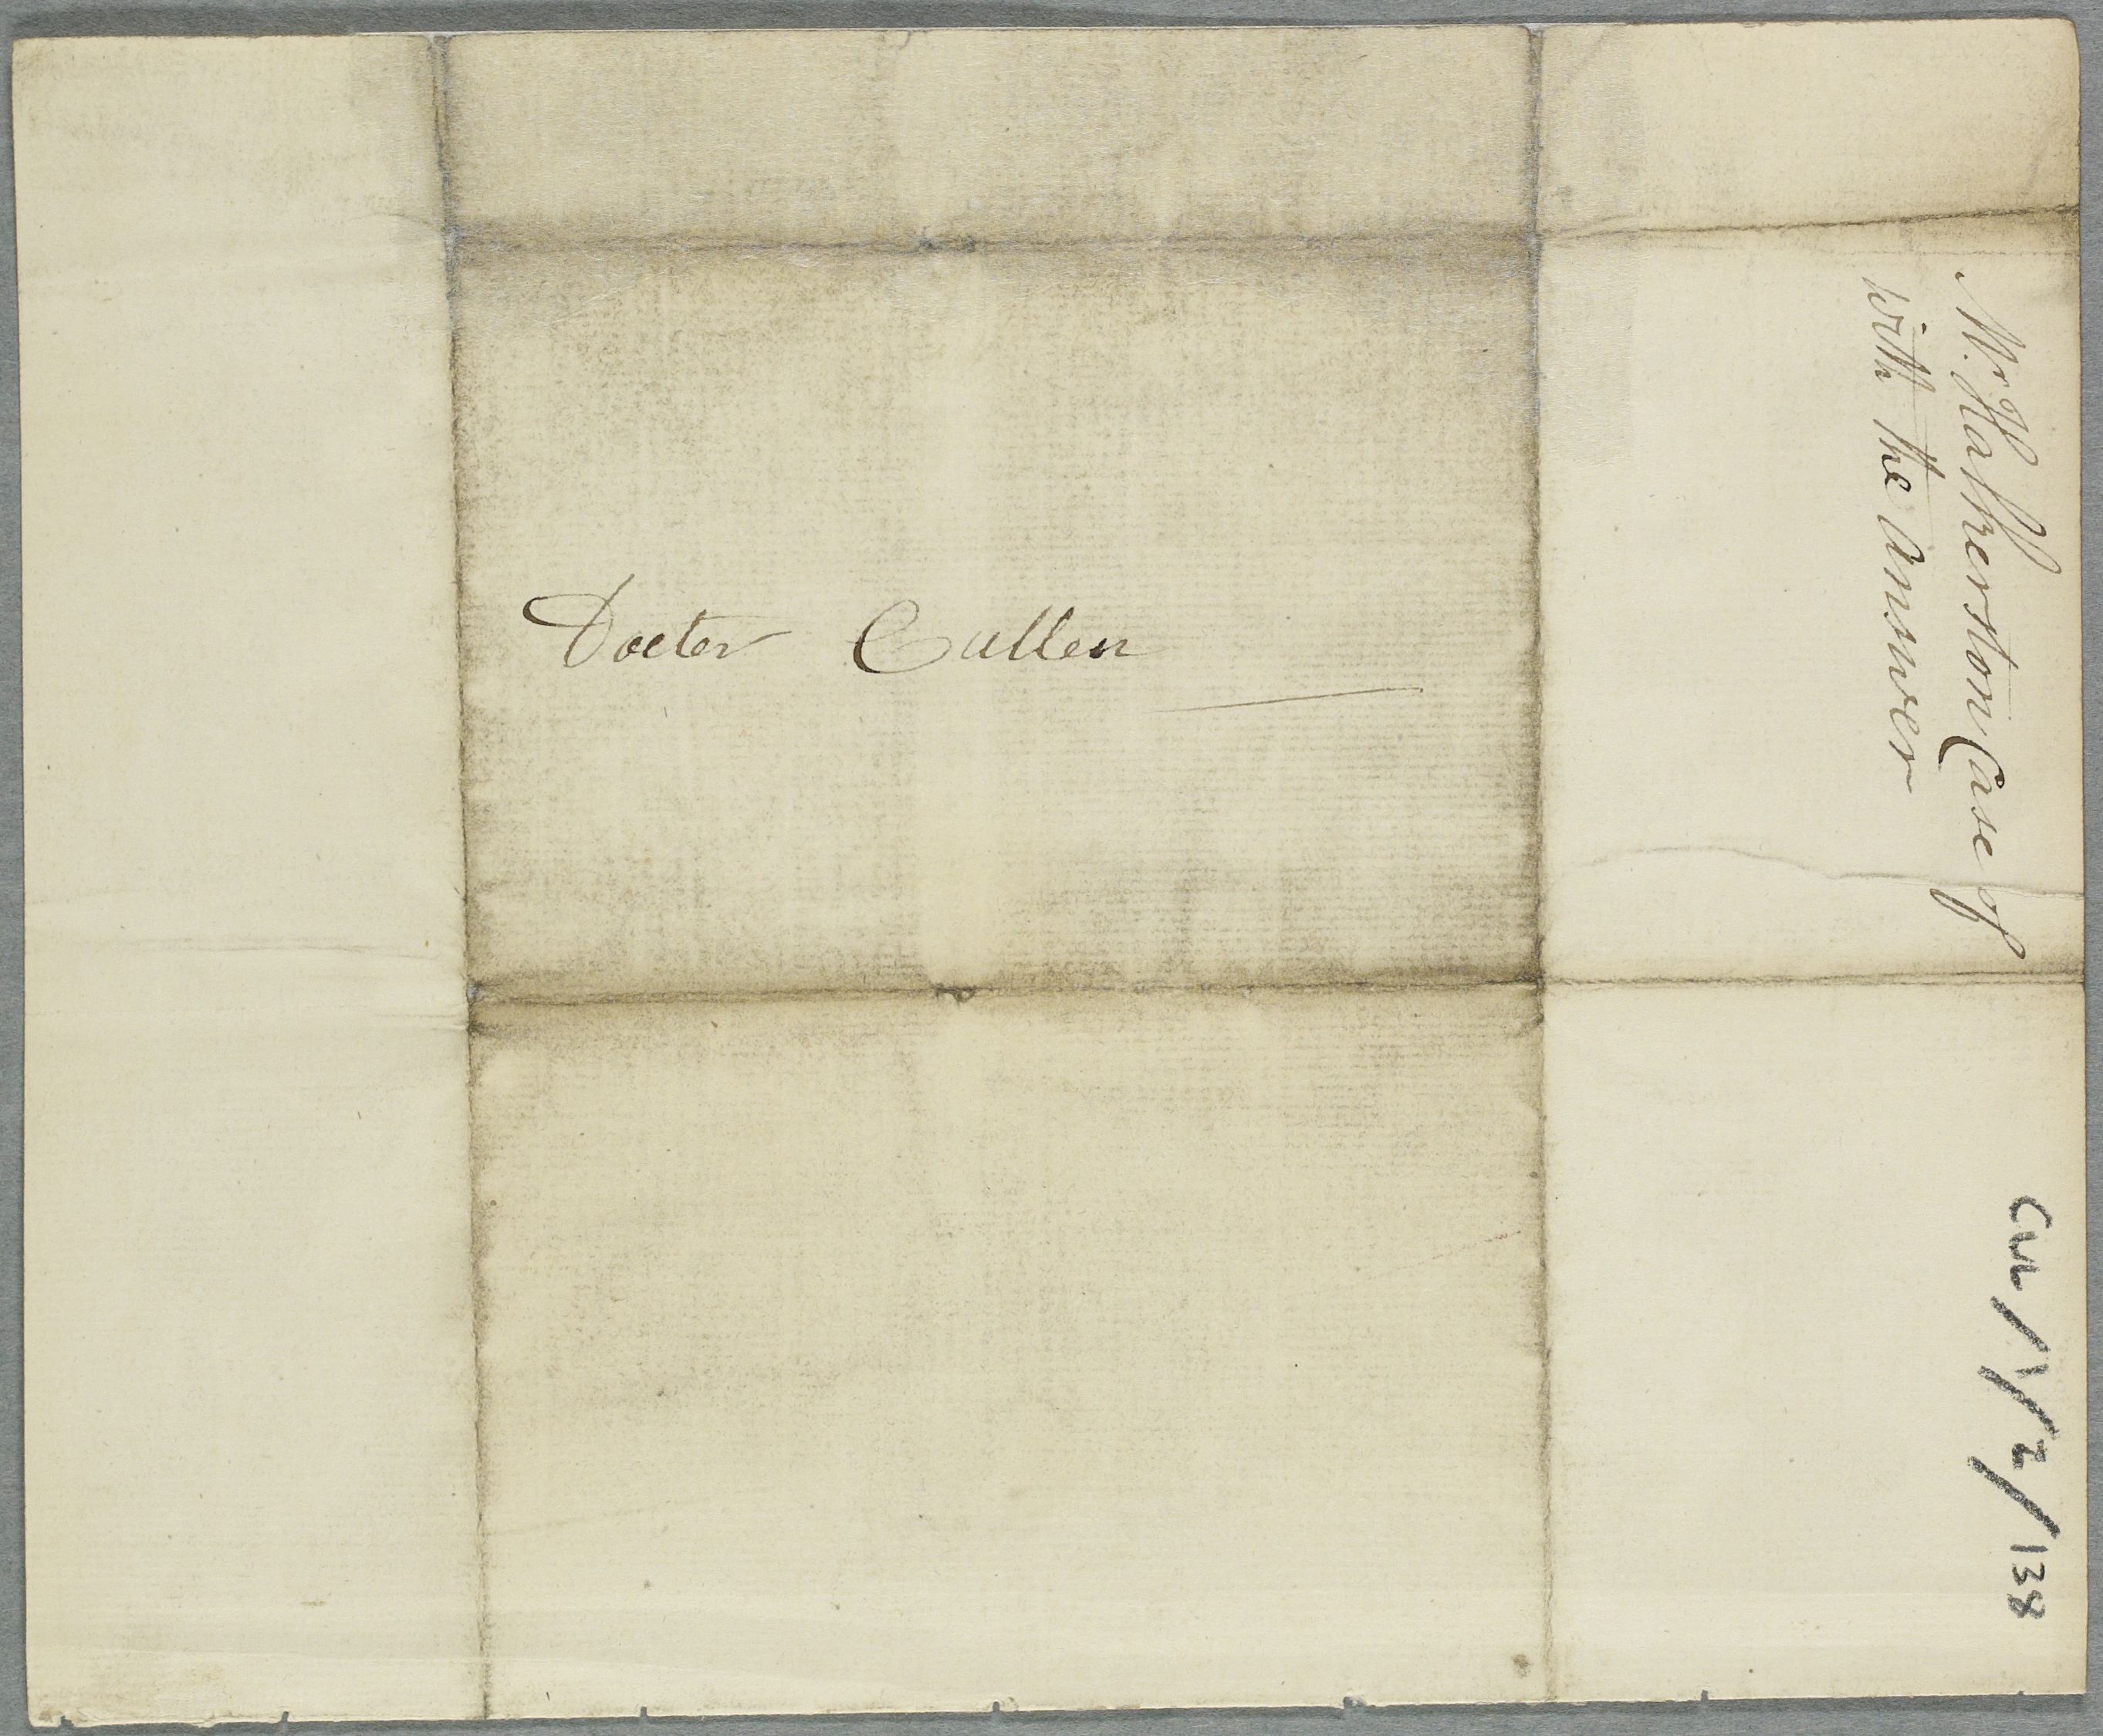 Docter Cullen
Mr. Hatherston Case of
with the answer
CUL/1/2/138